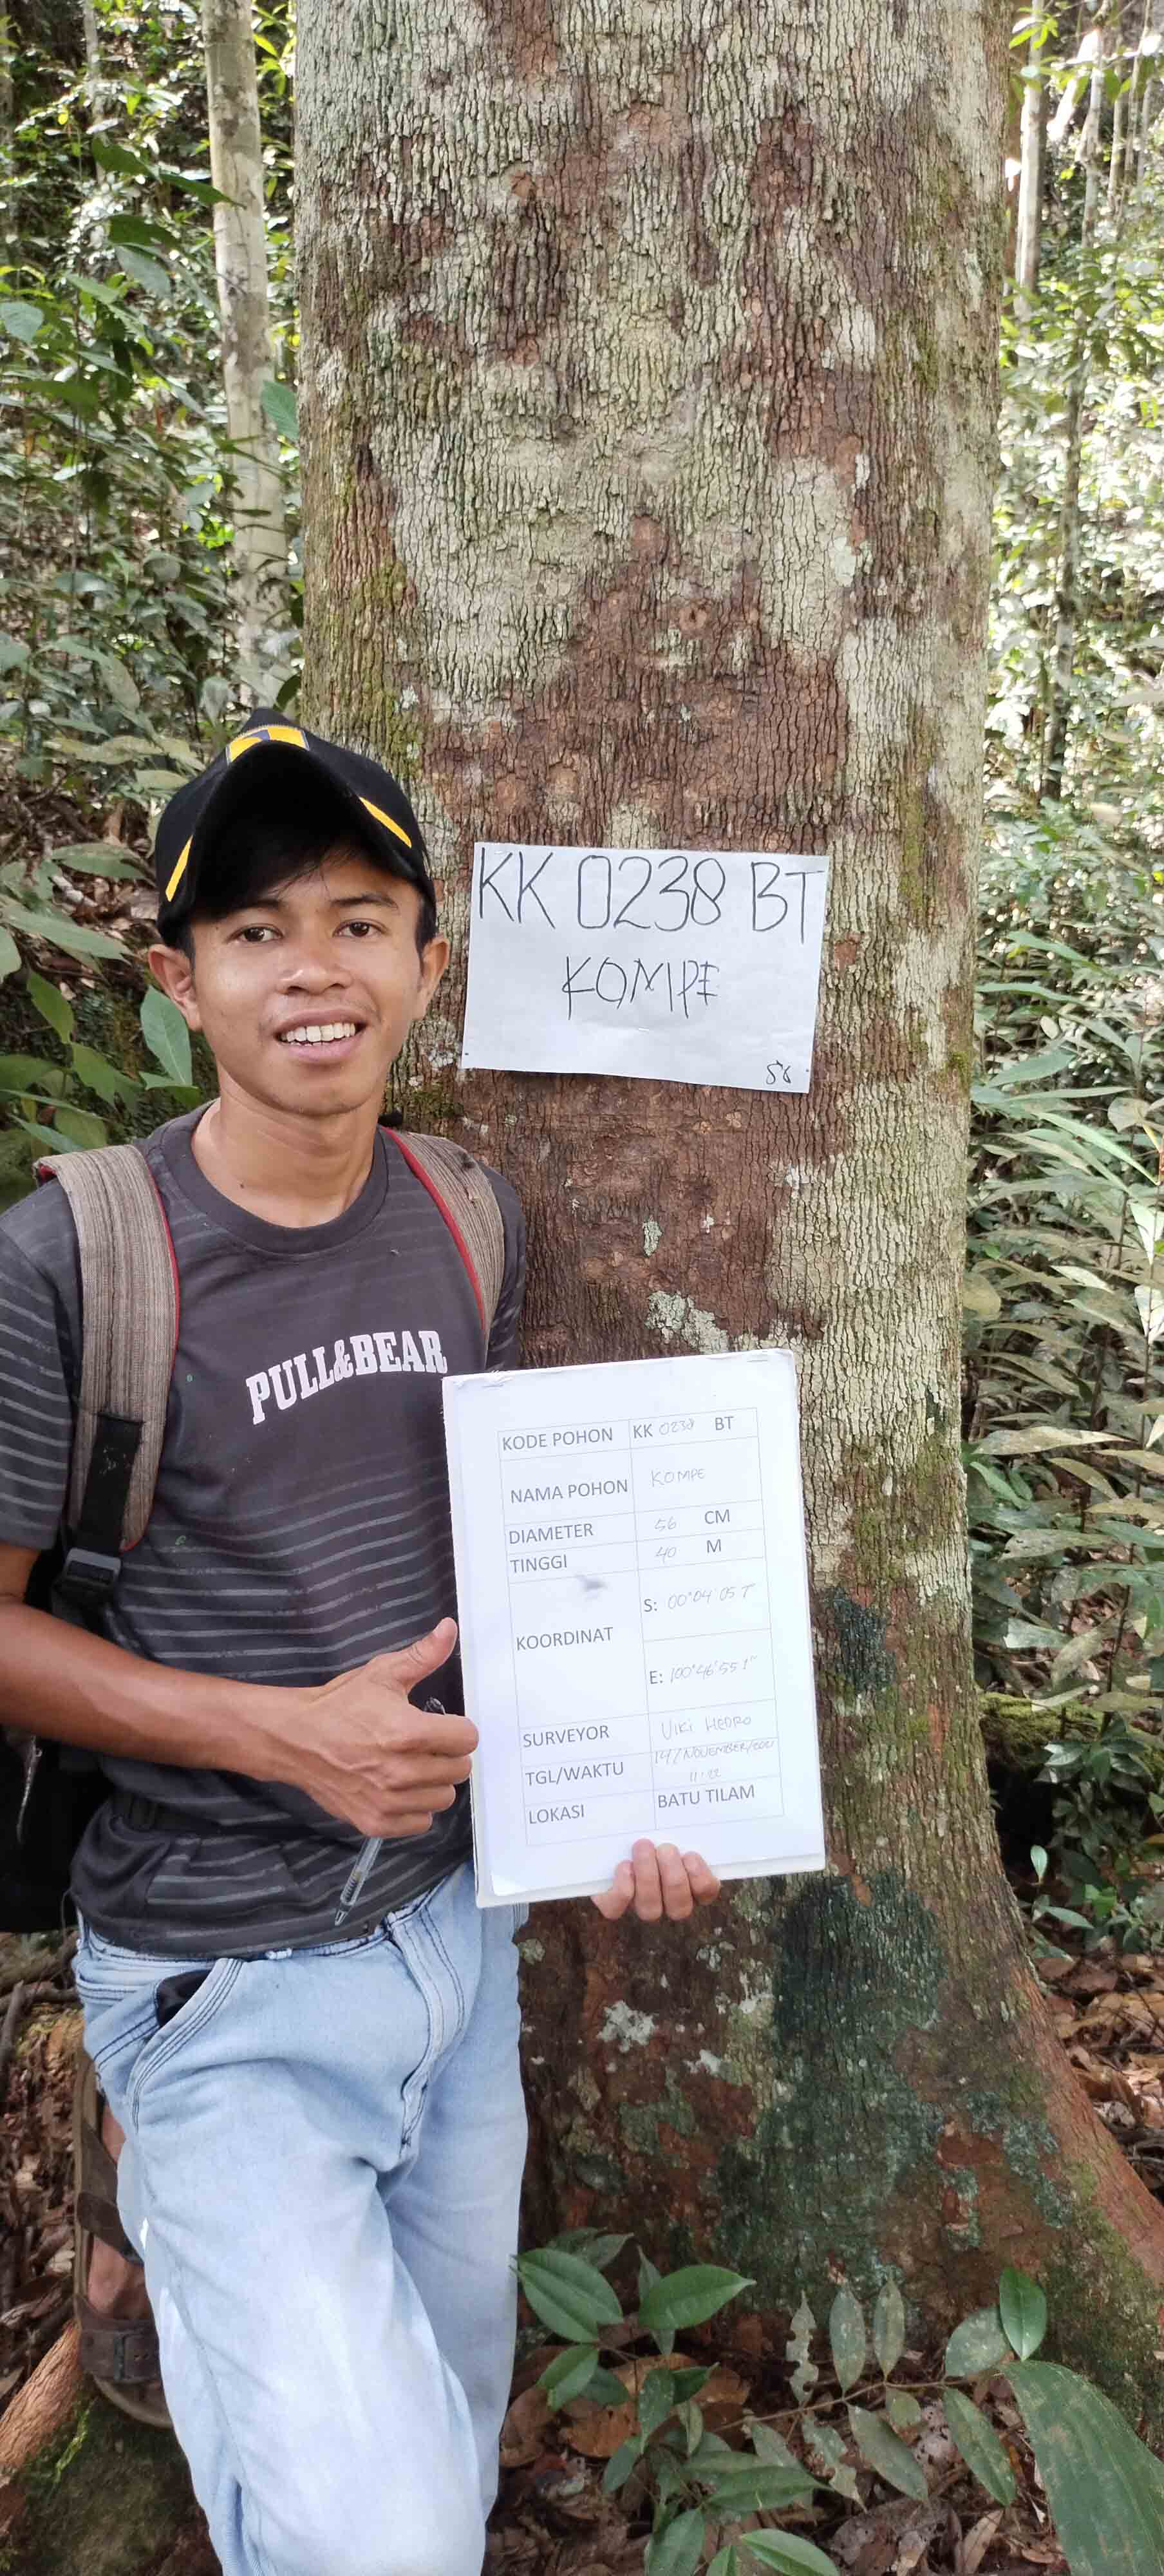 KK 0238 BT
KOMPE
56
PULL&BEAR
KODE POHON KK 0238 BT
NAMA POHON KOMPE
DIAMETER 56 CM
TINGGI 40 M
KOORDINAT
S: 00°04'05
E: 100°46'55 1"
SURVEYOR VIKI HEDRO
TGL/WAKTU 14/NOVEMBER/
LOKASI BATU TILAM